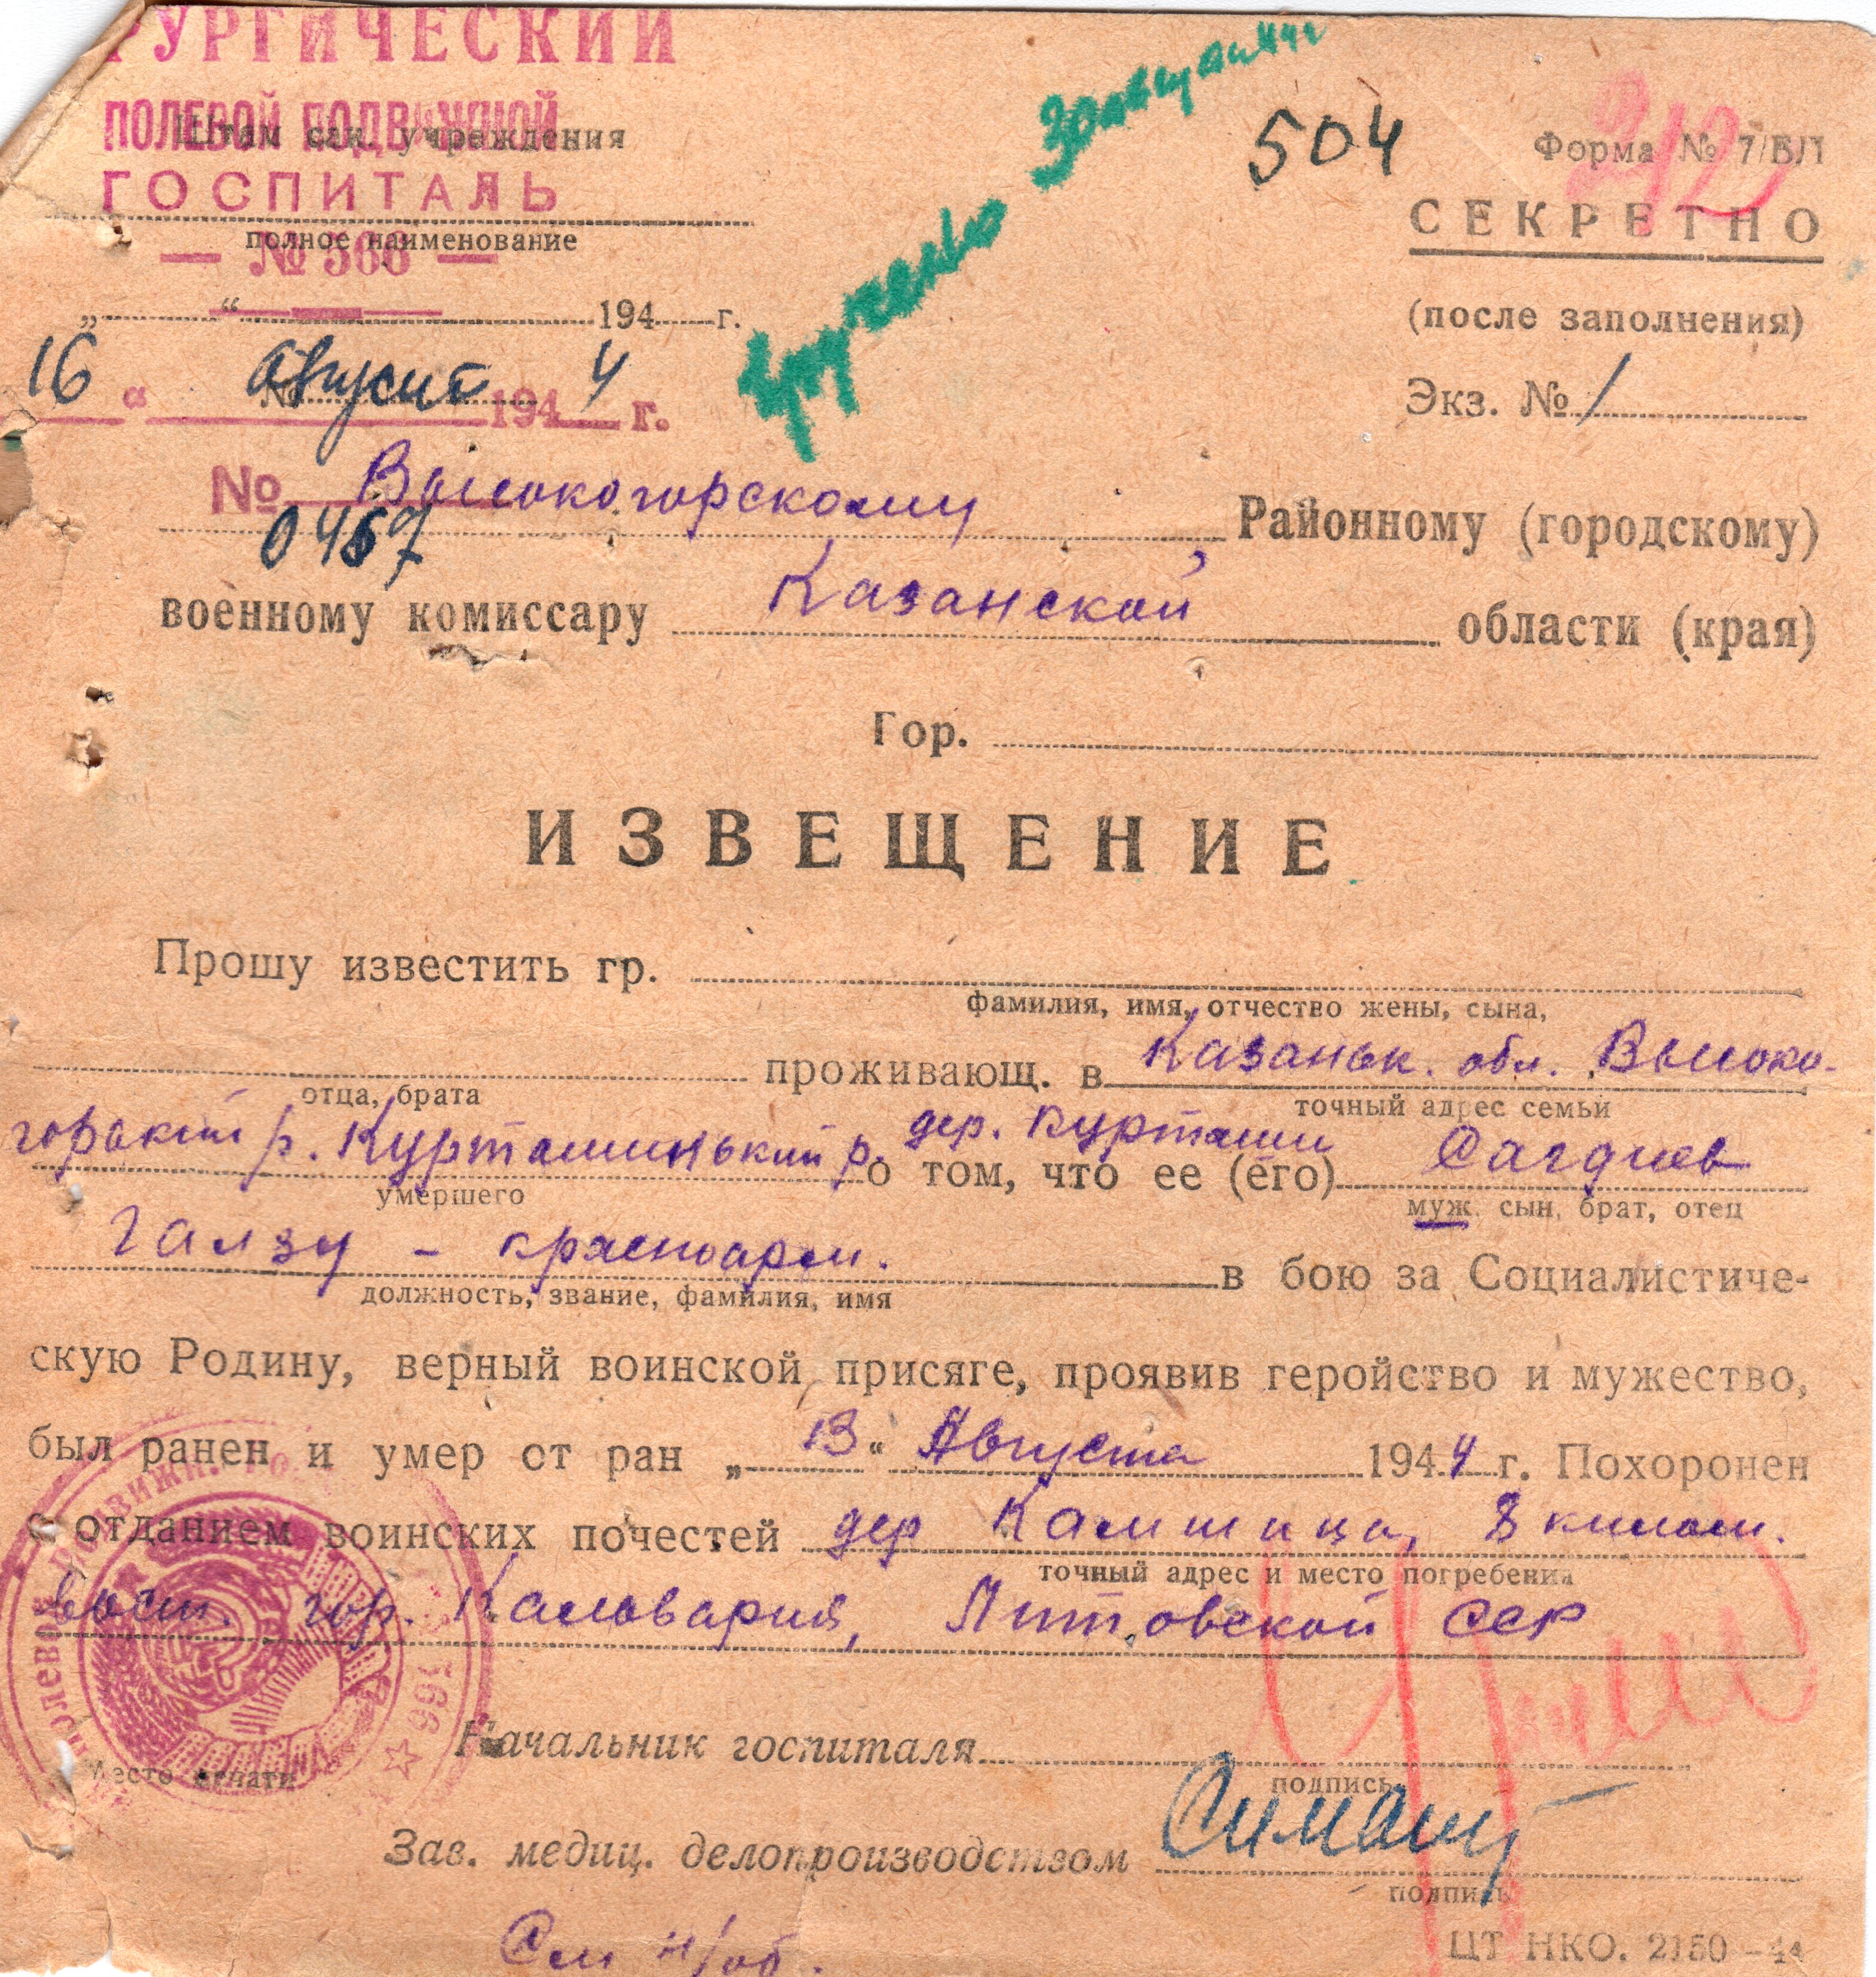 РУРГИЧЕСКИЙ
ПОЛЕВОЙ ПОДВИЖНОЙ
Штам сан. учреждения
ГОСПИТАЛЬ
полное наименование
— № 566 —
„ “ 194 г.
16 “ август 194 4 г.
№
0457
вручено Зоавещание
504
Форма № 7/БЛ
212
СЕКРЕТНО
(после заполнения)
Экз. № 1
Высокогорскому Районному (городскому)
военному комиссару Казанской области (края)
Гор.
ИЗВЕЩЕНИЕ
Прошу известить гр.
фамилия, имя, отчество жены, сына,
проживающ. в Казаньк. обл. Высоко-
отца, брата точный адрес семьи
горский р. Курташинький р. дер. Курташи о том, что ее (его) Сагдиев
умершего муж, сын, брат, отец
Галзу - красноарм. в бою за Социалистиче-
должность, звание, фамилия, имя
скую Родину, верный воинской присяге, проявив геройство и мужество,
был ранен и умер от ран „ 13 “ Августа 194 4 г. Похоронен
с отданием воинских почестей дер Камшица, 8 килом.
точный адрес и место погребения
вост. гор. Калвария, Литовской ССР
Начальник госпиталя
подпись
Место печати
Зав. медиц. делопроизводством
подпись
См н/об.
ЦТ НКО. 2150—44